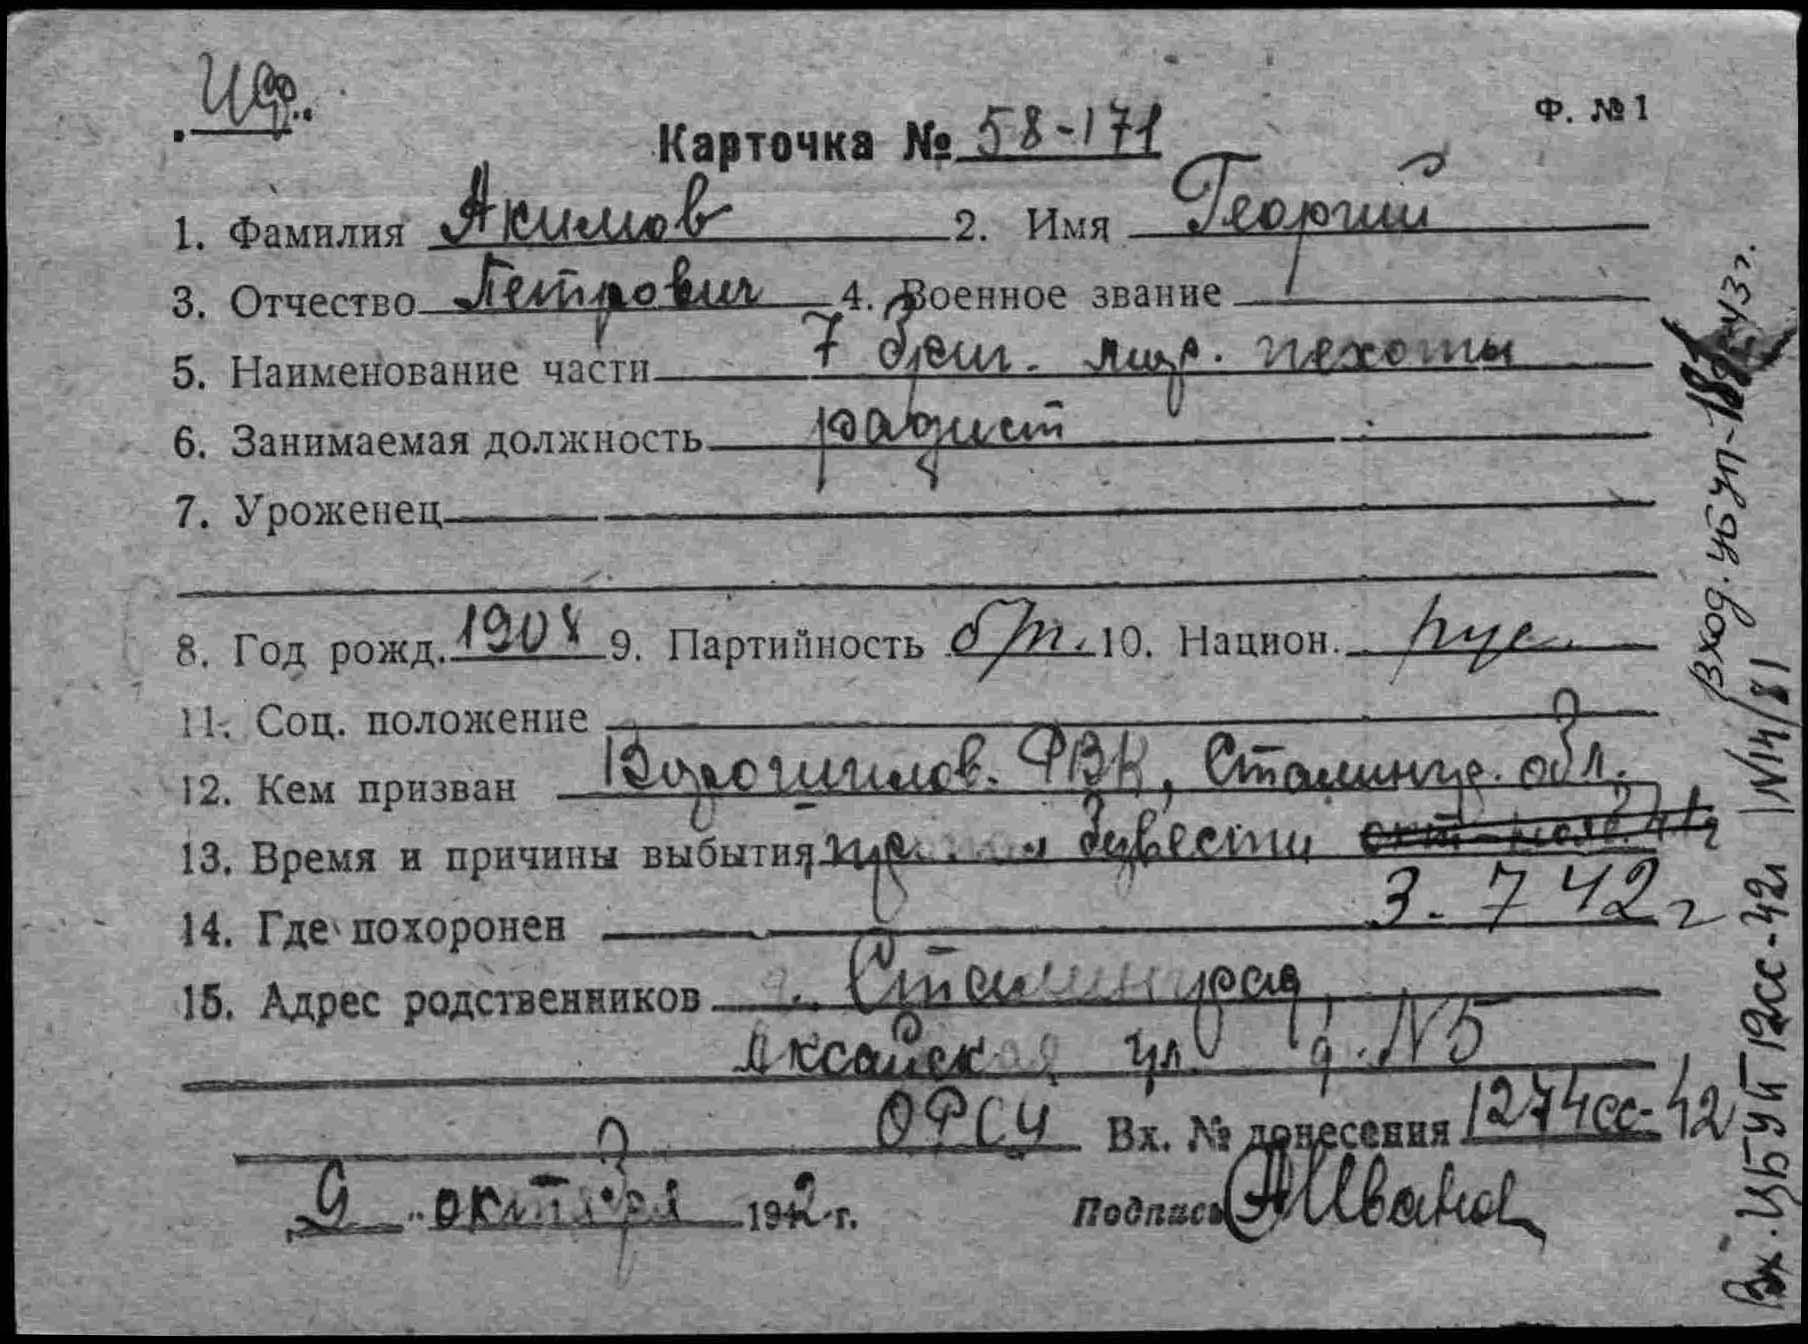 Ф. № 1
Карточка № 58-171
1. Фамилия Акимов 2. Имя Георгий
3. Отчество Петрович 4. Военное звание
5. Наименование части 7 бриг. мор. пехоты
6. Занимаемая должность радист
7. Уроженец
8. Год рожд. 1908 9. Партийность б/п. 10. Национ. рус.
11. Соц. положение
12. Кем призван Ворошилов. РВК, Сталингр. обл.
13. Время и причины выбытия безвести
14. Где похоронен 3. 7 42 г
15. Адрес родственников г. Сталинград,
Аксайская ул д. N5
ОРСУ Вх. № донесения 1274сс-42
9 октября 1942 г. Подпись Иванов
Вход. убуп- 43 г.
Вх. ЦБУП 19сс-42г N14/81